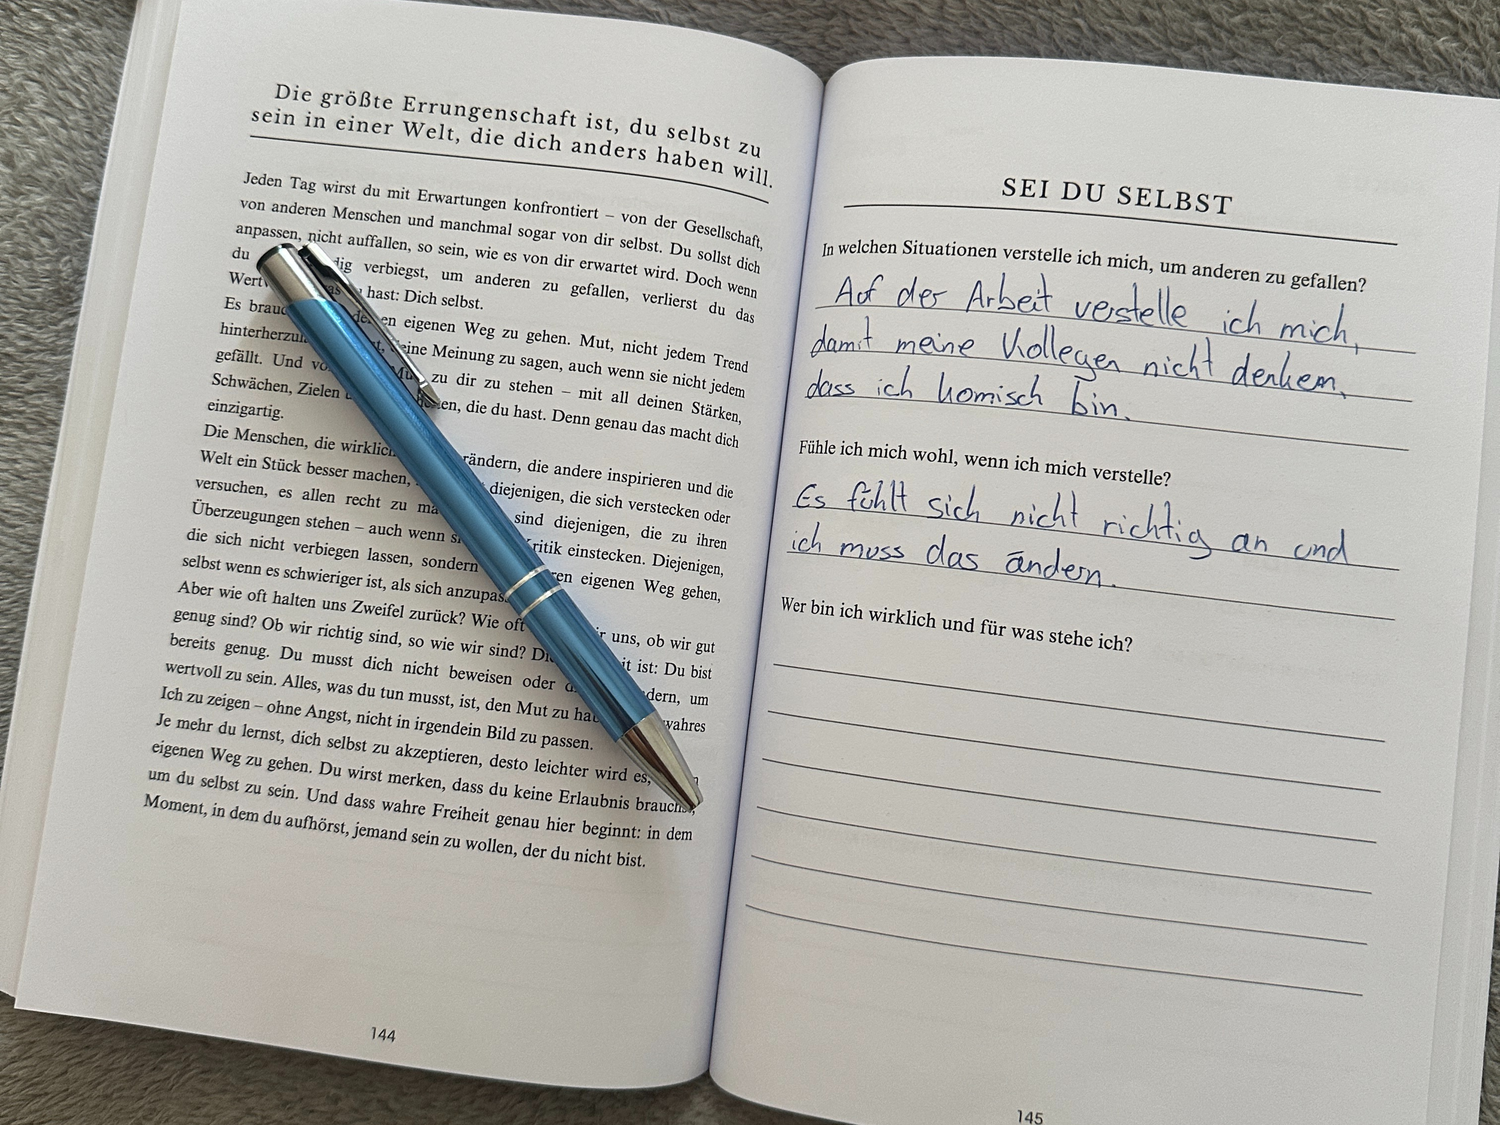 Die größte Errungenschaft ist, du selbst zu
sein in einer Welt, die dich anders haben will.
Jeden Tag wirst du mit Erwartungen konfrontiert – von der Gesellschaft,
von anderen Menschen und manchmal sogar von dir selbst. Du sollst dich
anpassen, nicht auffallen, so sein, wie es von dir erwartet wird. Doch wenn
du verbiegst, um anderen zu gefallen, verlierst du das
hast: Dich selbst.
Es eigenen Weg zu gehen. Mut, nicht jedem Trend
Meinung zu sagen, auch wenn sie nicht jedem
gefällt. Und zu dir zu stehen – mit all deinen Stärken,
Schwächen, Zielen die du hast. Denn genau das macht dich
einzigartig.
Die Menschen, die die andere inspirieren und die
Welt ein Stück besser machen, diejenigen, die sich verstecken oder
versuchen, es allen recht zu sind diejenigen, die zu ihren
Überzeugungen stehen – auch wenn Kritik einstecken. Diejenigen,
die sich nicht verbiegen lassen, sondern eigenen Weg gehen,
selbst wenn es schwieriger ist, als sich
Aber wie oft halten uns Zweifel zurück? Wie oft uns, ob wir gut
genug sind? Ob wir richtig sind, so wie wir sind? ist: Du bist
bereits genug. Du musst dich nicht beweisen oder um
wertvoll zu sein. Alles, was du tun musst, ist, den Mut zu wahres
Ich zu zeigen – ohne Angst, nicht in irgendein Bild zu passen.
Je mehr du lernst, dich selbst zu akzeptieren, desto leichter wird es,
eigenen Weg zu gehen. Du wirst merken, dass du keine Erlaubnis brauchst,
um du selbst zu sein. Und dass wahre Freiheit genau hier beginnt: in dem
Moment, in dem du aufhörst, jemand sein zu wollen, der du nicht bist.
144
SEI DU SELBST
In welchen Situationen verstelle ich mich, um anderen zu gefallen?
Auf der Arbeit verstelle ich mich,
damit meine Kollegen nicht denken,
dass ich komisch bin.
Fühle ich mich wohl, wenn ich mich verstelle?
Es fühlt sich nicht richtig an und
ich muss das ändern.
Wer bin ich wirklich und für was stehe ich?
145